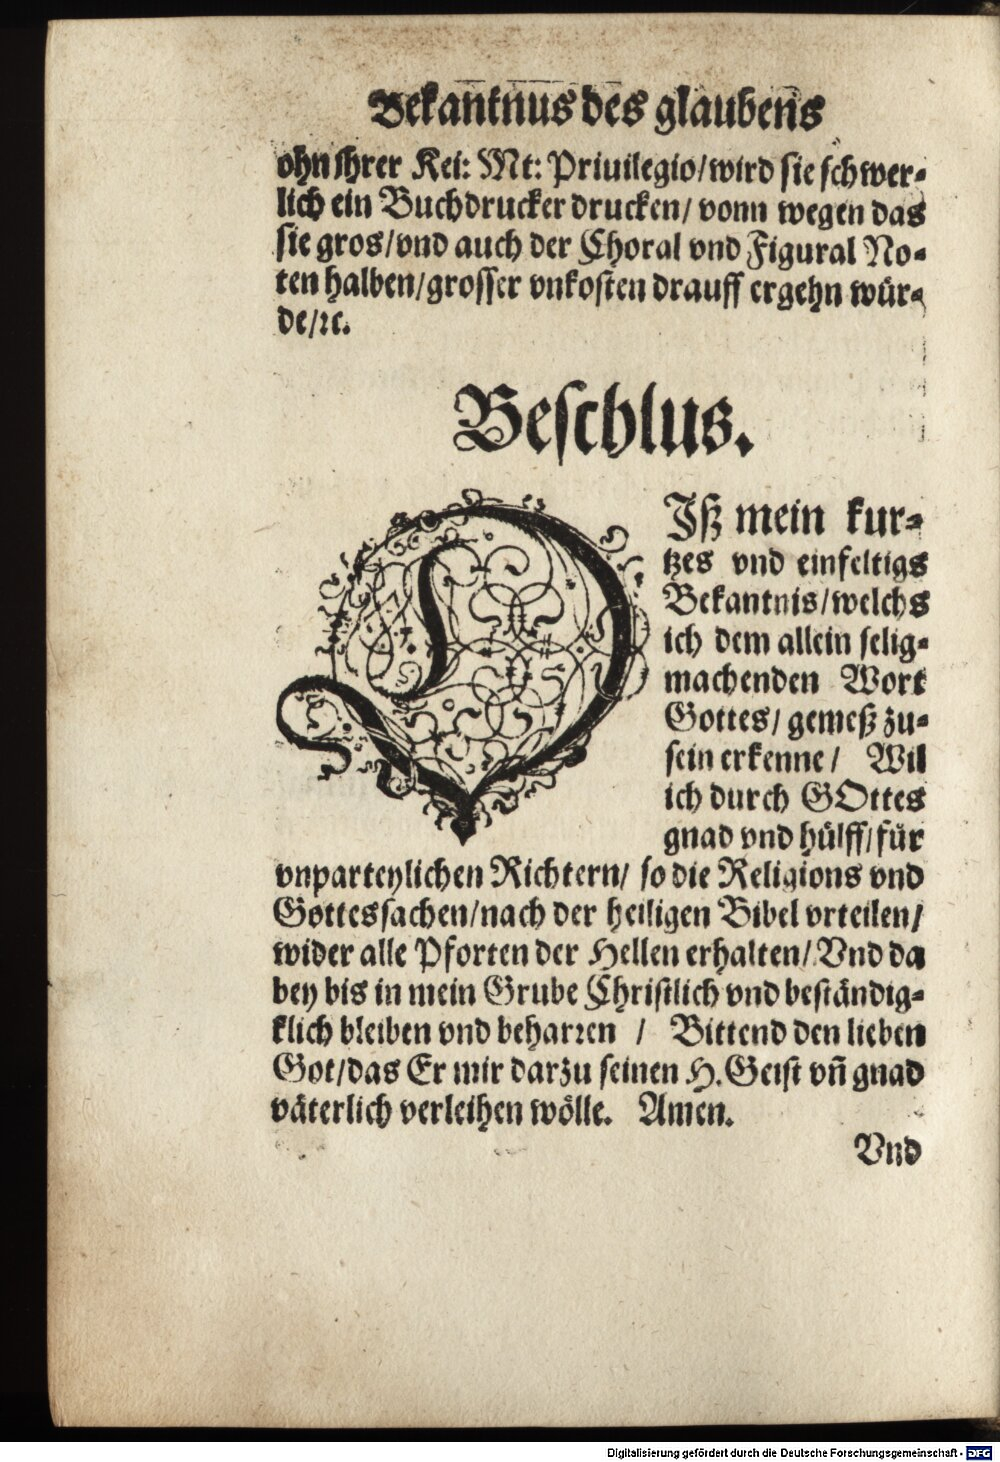 Bekantnus des glaubens
ohn jhrer Kei: Mt: Priuilegio/wird sie schwer-
lich ein Buchdrucker drucken/ vonn wegen das
sie gros/vnd auch der Choral vnd Figural No-
ten halben/grosser vnkosten drauff ergehn wür-
de/ꝛc.
Beschlus.
DIß mein kur-
tzes vnd einfeltigs
Bekantnis/welchs
ich dem allein selig-
machenden Wort
Gottes/ gemeß zu-
sein erkenne/ Wil
ich durch GOttes
gnad vnd hülff/für
vnparteylichen Richtern/ so die Religions vnd
Gottessachen/nach der heiligen Bibel vrteilen/
wider alle Pforten der Hellen erhalten/ Vnd da
bey bis in mein Grube Christlich vnd beständig-
klich bleiben vnd beharren / Bittend den lieben
Got/das Er mir darzu seinen H. Geist vñ gnad
väterlich verleihen wölle. Amen.
Vnd
Digitalisierung gefördert durch die Deutsche Forschungsgemeinschaft - DFG